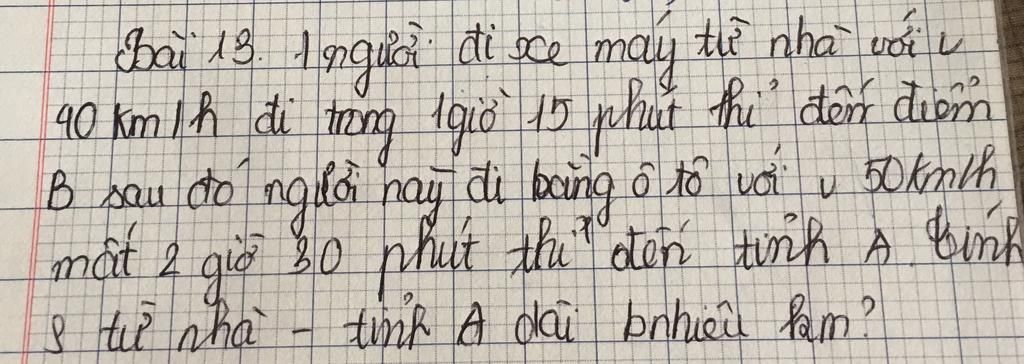 Bài 13. 1 người đi xe máy từ nhà với v
40 km/h đi trong 1giờ 15 phút thì đến điểm
B sau đó người này đi bằng ô tô với v 50km/h
mất 2 giờ 30 phút thì đến tỉnh A. tính
S từ nhà - tỉnh A dài bnhiêu km?